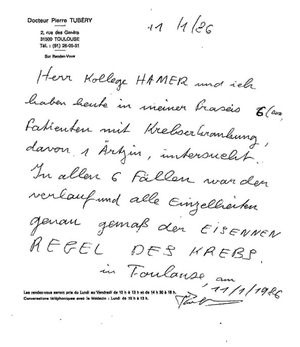 Docteur Pierre TUBÉRY
2, rue des Genêts
31500 TOULOUSE
Sur Rendez-Vous
11/1/86
Herr Kollege HAMER und ich
haben heute in meiner Praxis 6
Patienten mit Krebserkrankung,
davon 1 Ärztin, untersucht.
In allen 6 Fällen war der
verlauf und alle Einzelheiten
genau gemäß der EISERNEN
REGEL DES KREBS.
in Toulouse, am
11/1/1986
Les rendez-vous seront pris du Lundi au Vendredi de 10 h à 13 h et de 14 h 30 à 18 h.
Conversations téléphoniques avec le Médecin : Lundi de 10 h à 13 h.